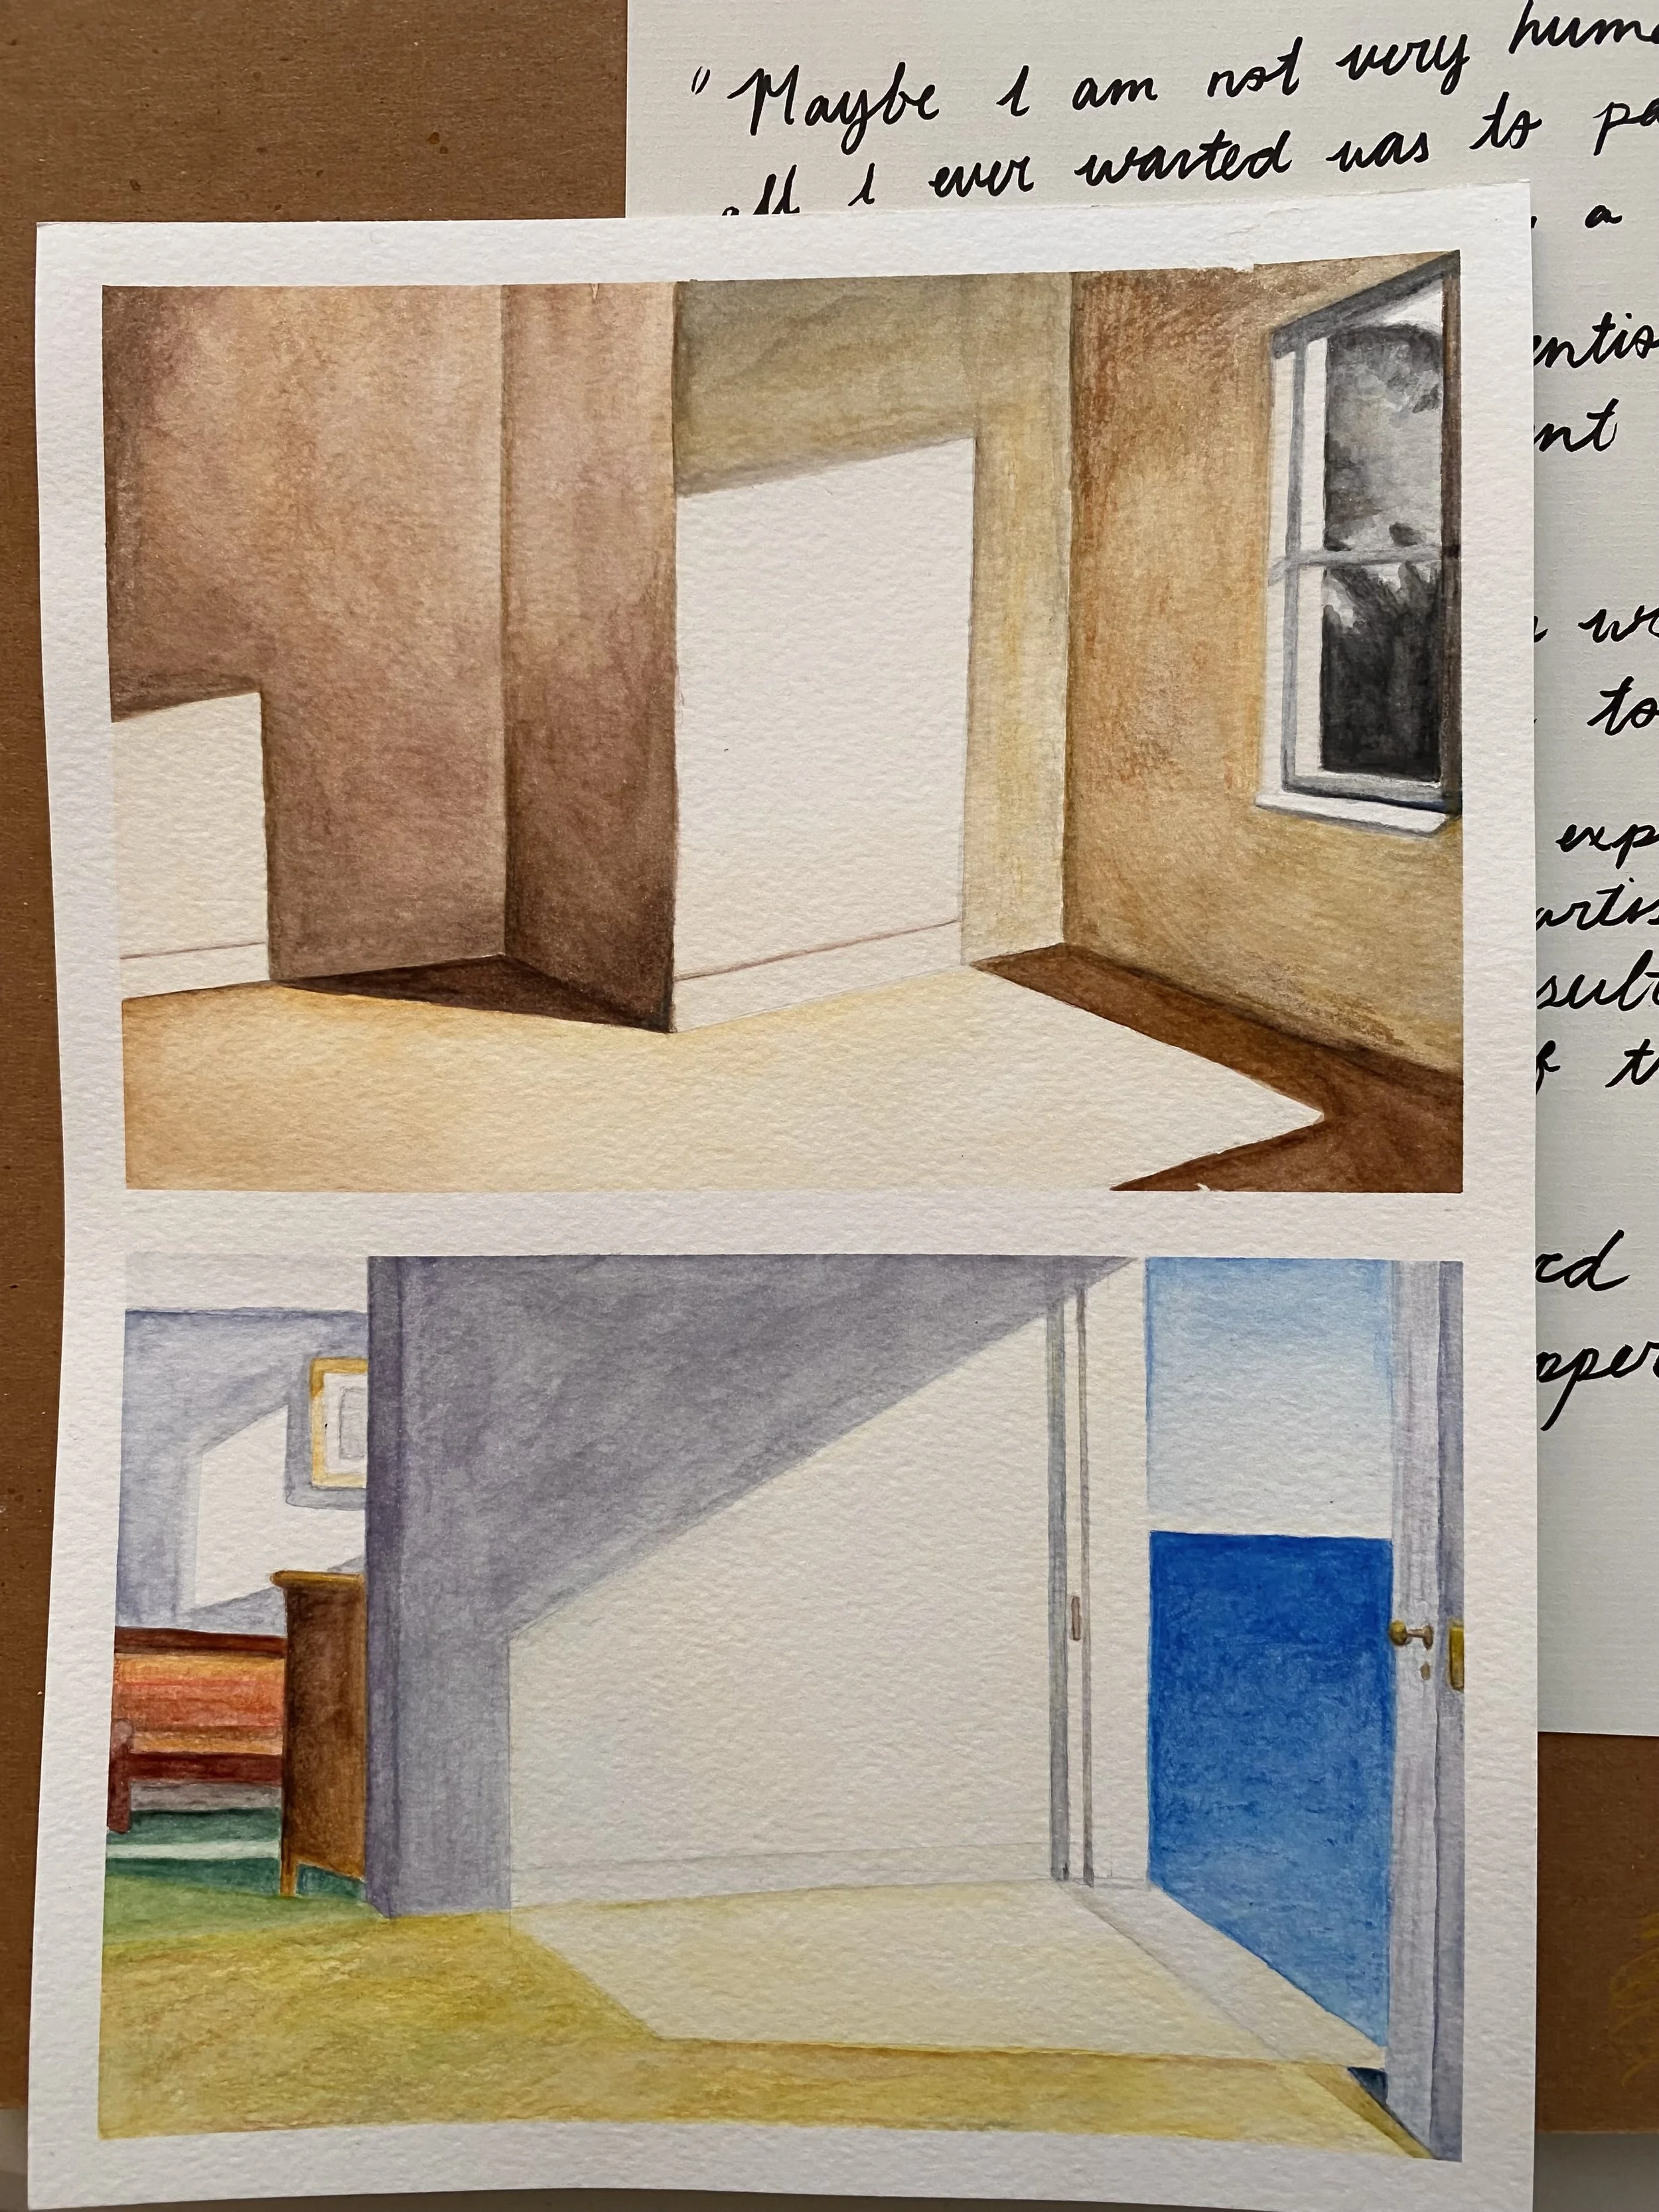 "Maybe I am not very huma
all I ever wanted was to pa
a
entis
ent
wr
to
exp
artis
sult
of t
rd
pper